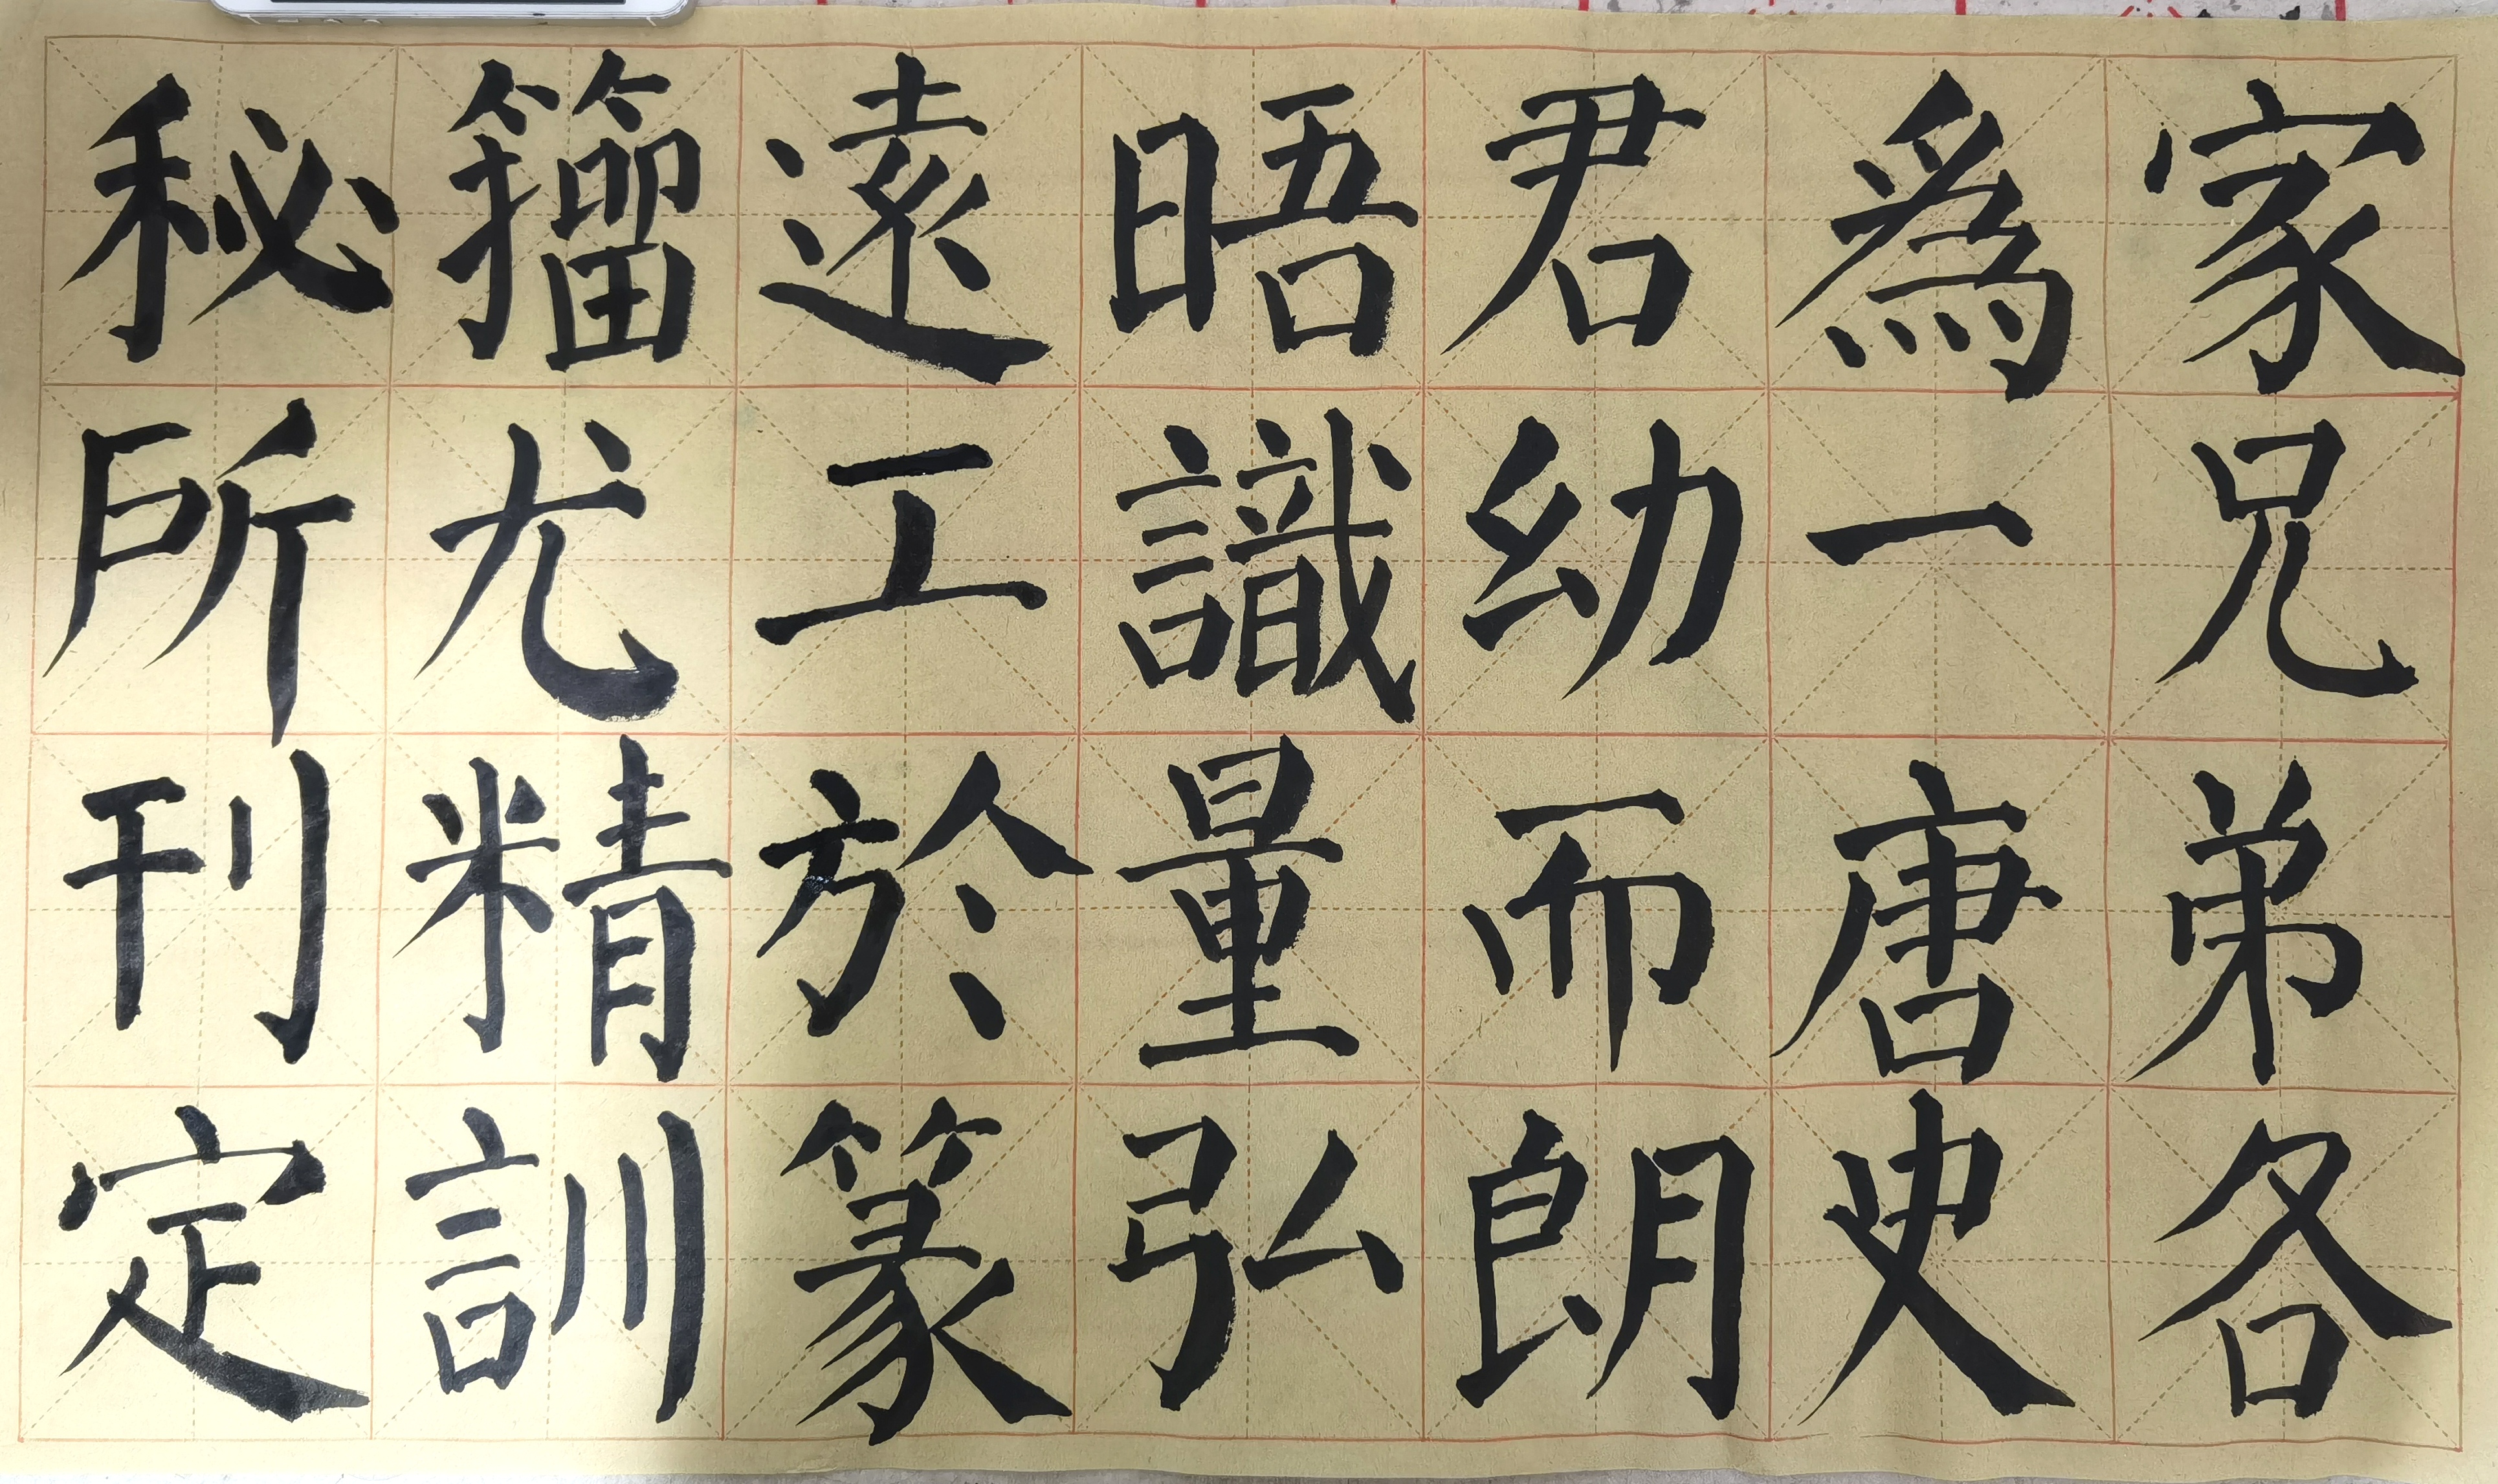 家兄弟各
爲一唐史
君幼而朗
晤識量弘
遠工於篆
籀尤精訓
秘所刊定